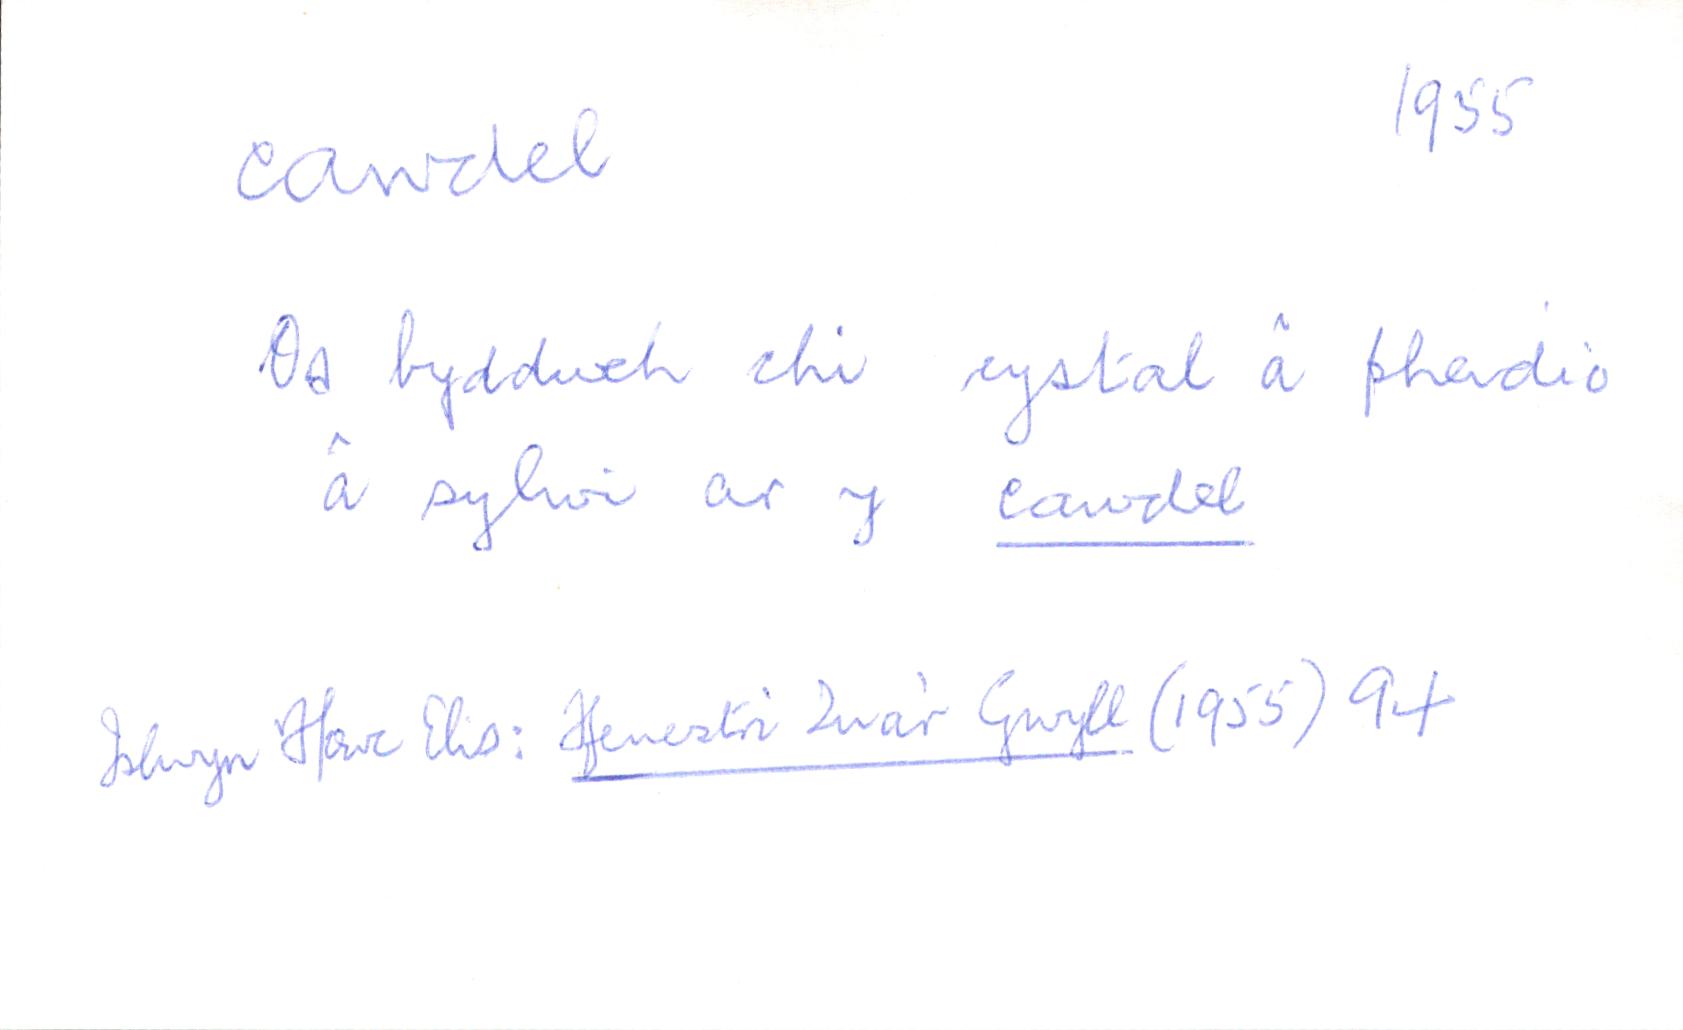 1955
cawdel
Os byddwch chi cystal â pheidio
â sylwi ar y cawdel
Islwyn Ffowc Elis: Ffenestri Tua'r Gwyll (1955) 94